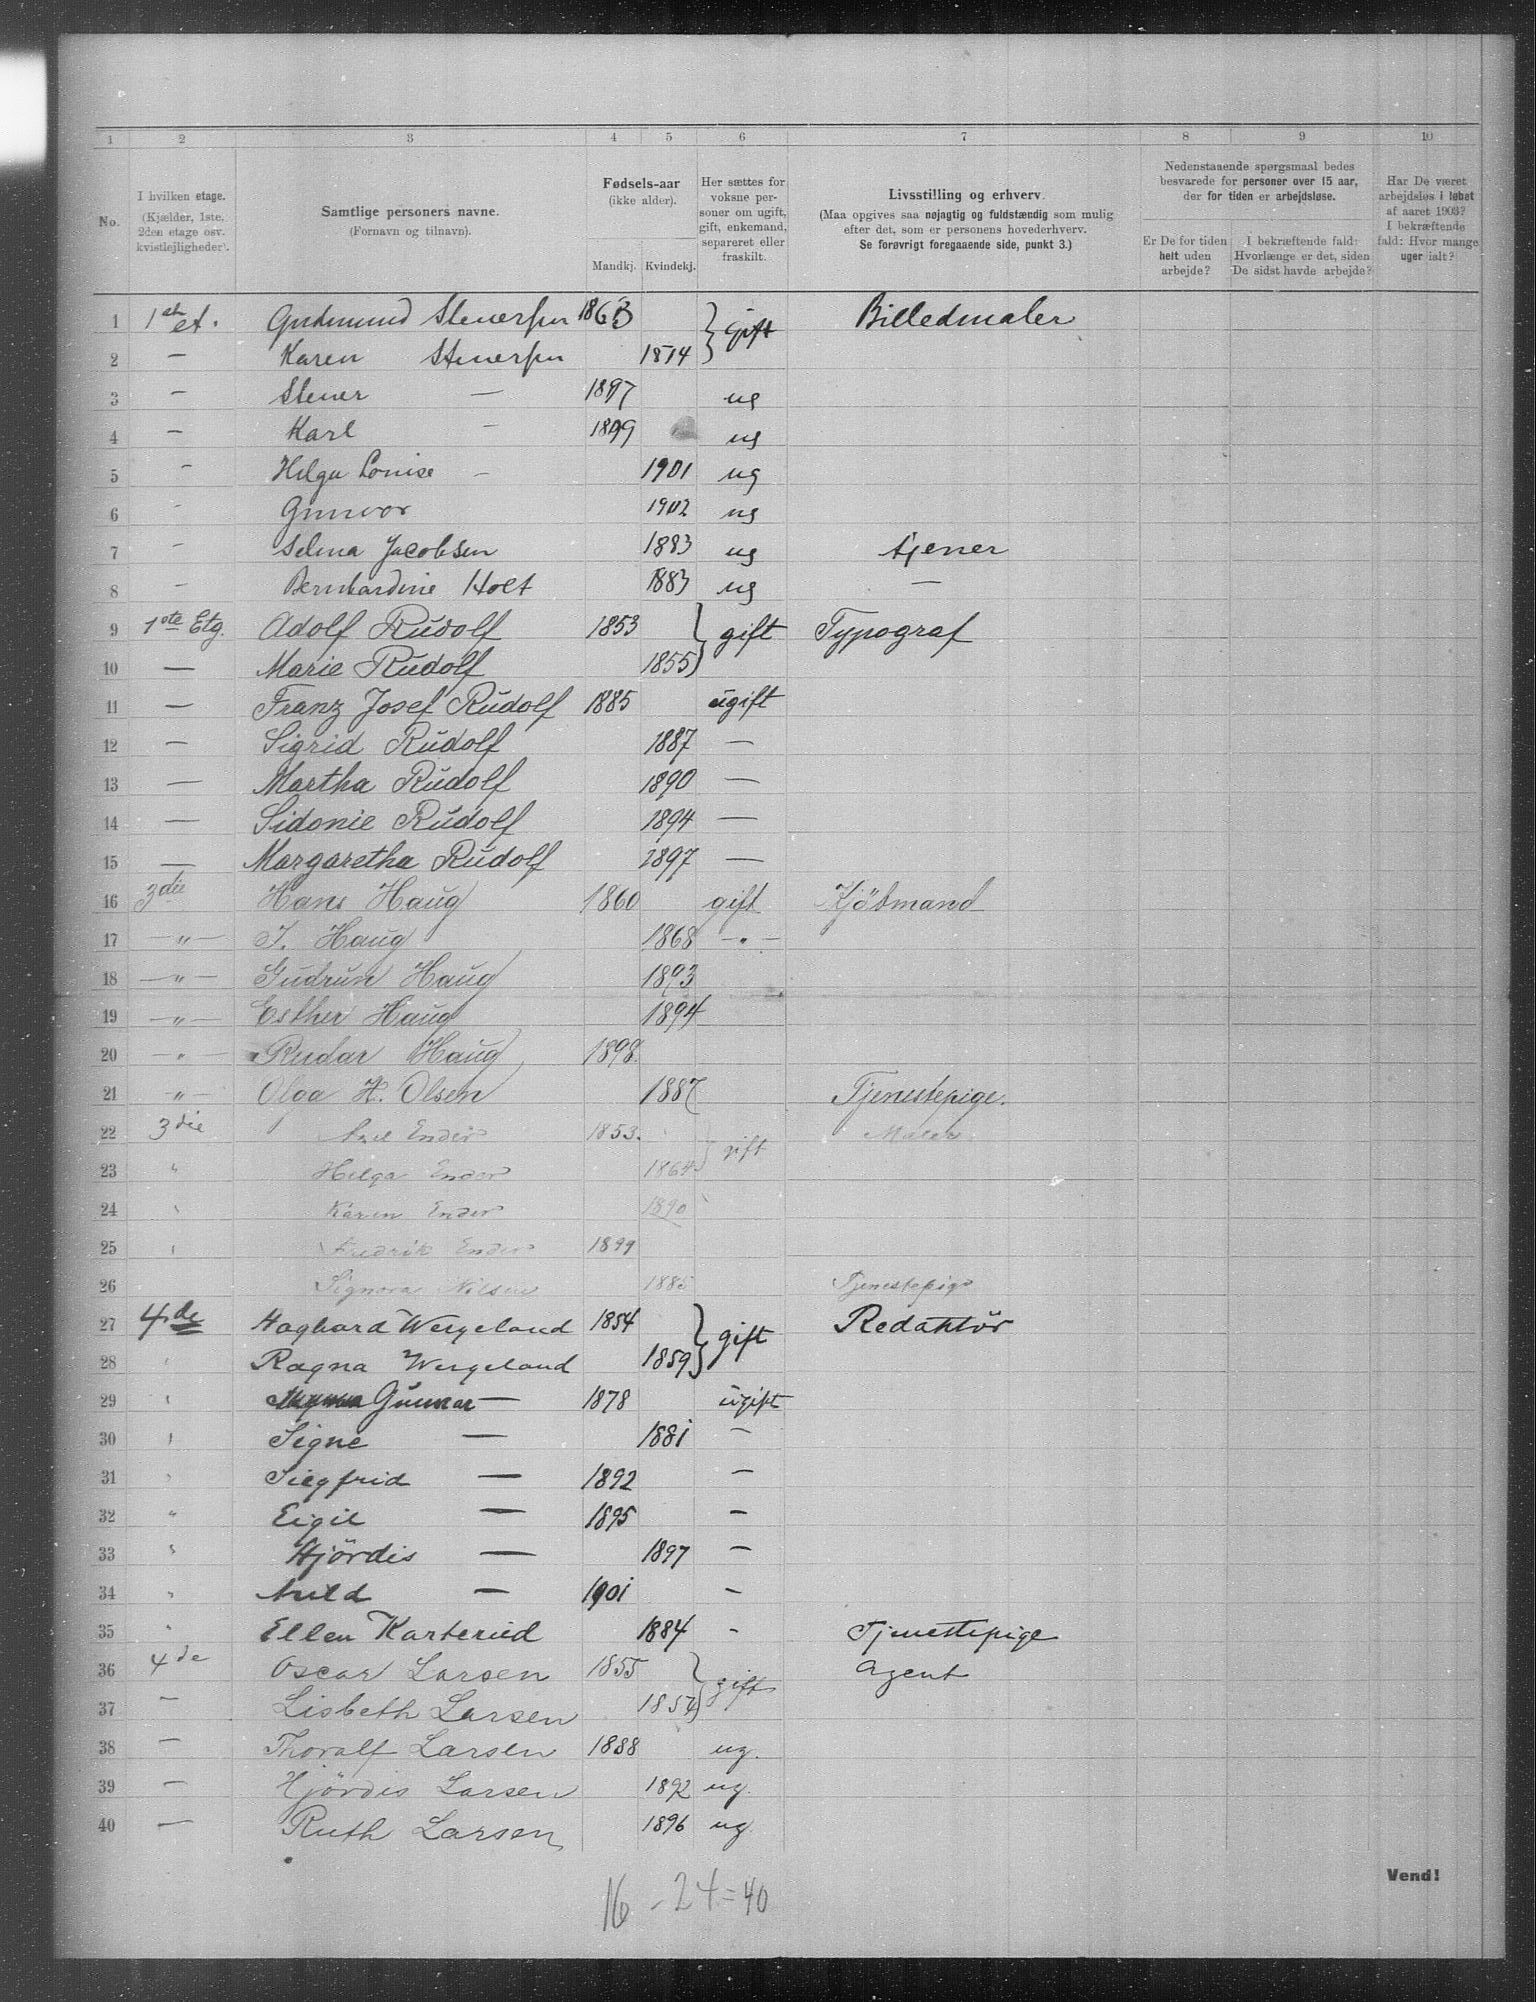 1 2 3 4 5 6 7 8 9 10
No.
I hvilken etage. (Kjælder, 1ste, 2den etage osv. kvistlejligheder).
Samtlige personers navne. (Fornavn og tilnavn).
Fødsels-aar (ikke alder).
Mandkj. Kvindekj.
Her sættes for voksne personer om ugift, gift, enkemand, separeret eller fraskilt.
Livsstilling og erhverv.
(Maa opgives saa nøjagtig og fuldstændig som mulig efter det, som er personens hovederhverv.
Se forøvrigt foregaaende side, punkt 3.)
Nedenstaaende spørgsmaal bedes besvarede for personer over 15 aar, der for tiden er arbejdsløse.
Er De for tiden helt uden arbejde?
I bekræftende fald: Hvorlænge er det, siden De sidst havde arbejde?
Har De været arbejdsløs i løbet af aaret 1903? I bekræftende fald: Hvor mange uger ialt?
1 1ste et. Gudmund Stenersen 1863 gift Billedmaler
2 — Karen Stenersen 1874
3 — Stener — 1897 ug
4 — Karl — 1899 ug
5 — Helga Louise — 1901 ug
6 - Gunvor 1902 ug
7 - Selma Jacobsen 1883 ug tjener
8 - Bernhardine Holt 1883 ug —
9 1ste Etg. Adolf Rudolf 1853 gift Typograf
10 — Marie Rudolf 1855
11 — Franz Josef Rudolf 1885 ugift
12 — Sigrid Rudolf 1887 —
13 — Martha Rudolf 1890 —
14 — Sidonie Rudolf 1894 —
15 — Margaretha Rudolf 1897 —
16 3die Hans Haug 1860 gift Kjøbmand
17 —"— J. Haug 1868 —"—
18 —"— Gudrun Haug 1893
19 —"— Esther Haug 1894
20 —"— Rudar Haug 1898.
21 —"— Olga H. Olsen 1887 Tjenestepige.
22 3die Axel Ender 1853. gift Maler
23 " Helga Ender 1864
24 " Karen Ender 1890
25 " Fredrik Ender 1899
26 Signora Nilsen 1885 Tjenestepige
27 4de Hagbard Wergeland 1854 gift Redaktör
28 " Ragna Wergeland 1859
29 " Gunnar — 1878 ugift
30 " Signe — 1881 —
31 " Siegfrid — 1892 —
32 " Eigil — 1895 —
33 " Hjördis — 1897 —
34 " — 1901 -
35 " Ellen 1884 - Tjenestepige
36 4de Oscar Larsen 1855 gift Agent
37 — Lisbeth Larsen 1854
38 — Thoralf Larsen 1888 ug.
39 — Hjördis Larsen 1892 ug.
40 — Ruth Larsen 1896 ug
Vend!
16 - 24 = 40